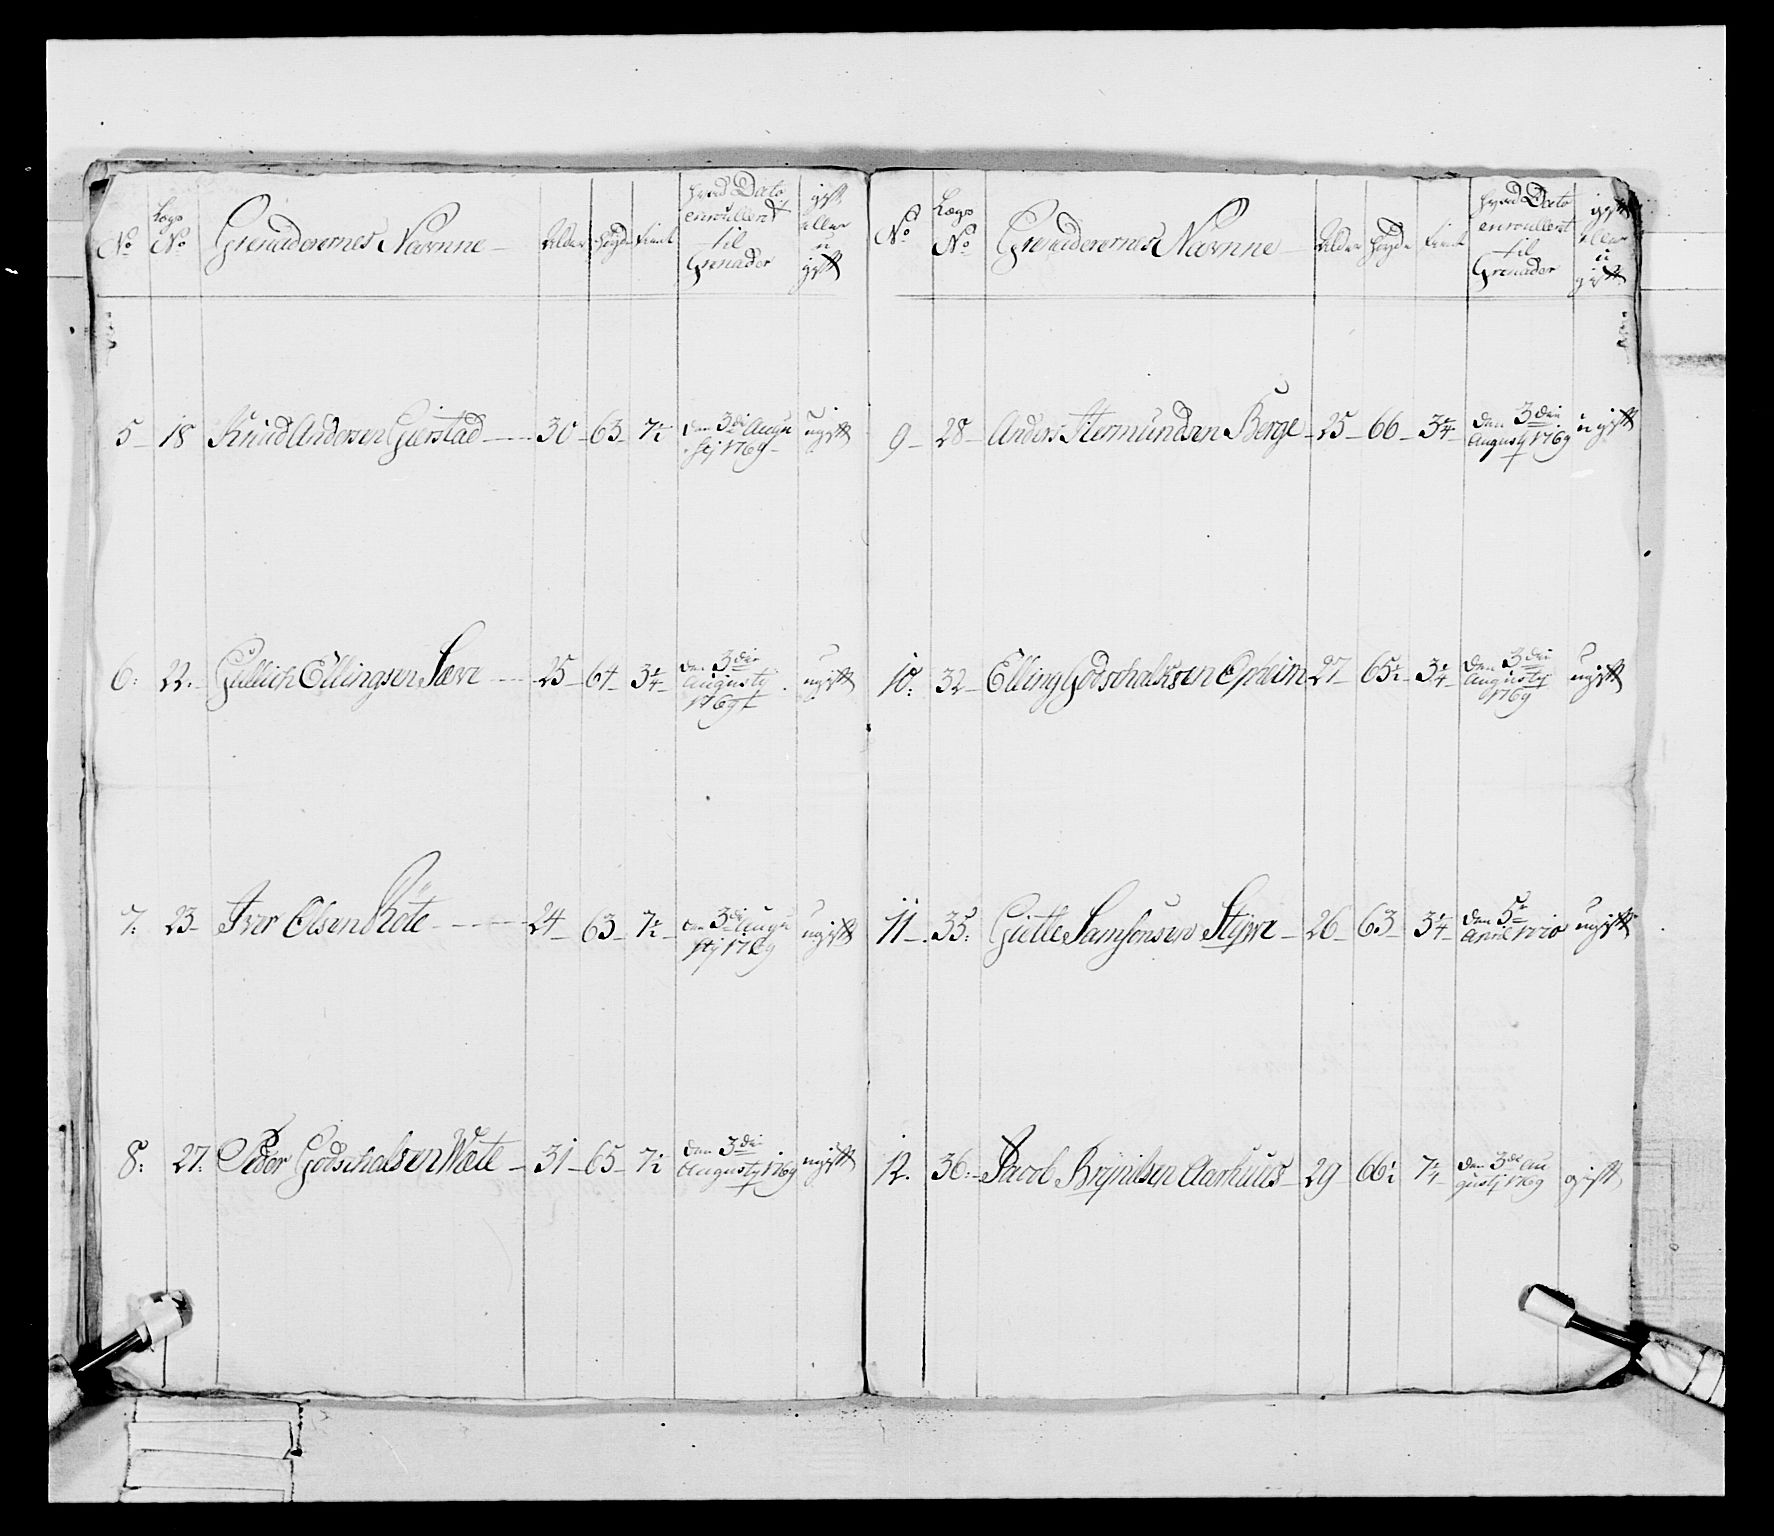 No
Lægs No
Grenaderernes Navnne
Alder
Høyde
hvad Dato enroullert til Grenader
gift eller ugift
5 18 Knud Andersen Gierstad 30 63 7 den 3die Augustj 1769 ugift
6: 22. Gullich Ellingsen Sæve 25 64 3/4 den 3die Augustj 1769 ugift
7: 23 Iver Olsen Röte 24 63 7 den 3die Augustj 1769 ugift
8: 27: Peder Godschalsen Wæte 31 65 7 den 3die Augustj 1769 ugift
No
Lægs No
Grenaderernes Navnne
Alder
Høyde
hvad Dato enroullert til Grenader
gift eller ugift
9 28 Anders Stermundsen Berge 25 66 3/4 den 3die Augustj 1769 ugift
10: 32 Elling Godschalksen Opheim 27 65½ 3/4 den 3die Augustj 1769 ugift
11 35: Giettle Samsonsen Styve 26 63 3/4 den 5te April 1770 ugift
12. 36: Jacob Brynilsen Aarhuus 29 66½ 7/4 den 3die Augustj 1769 gift